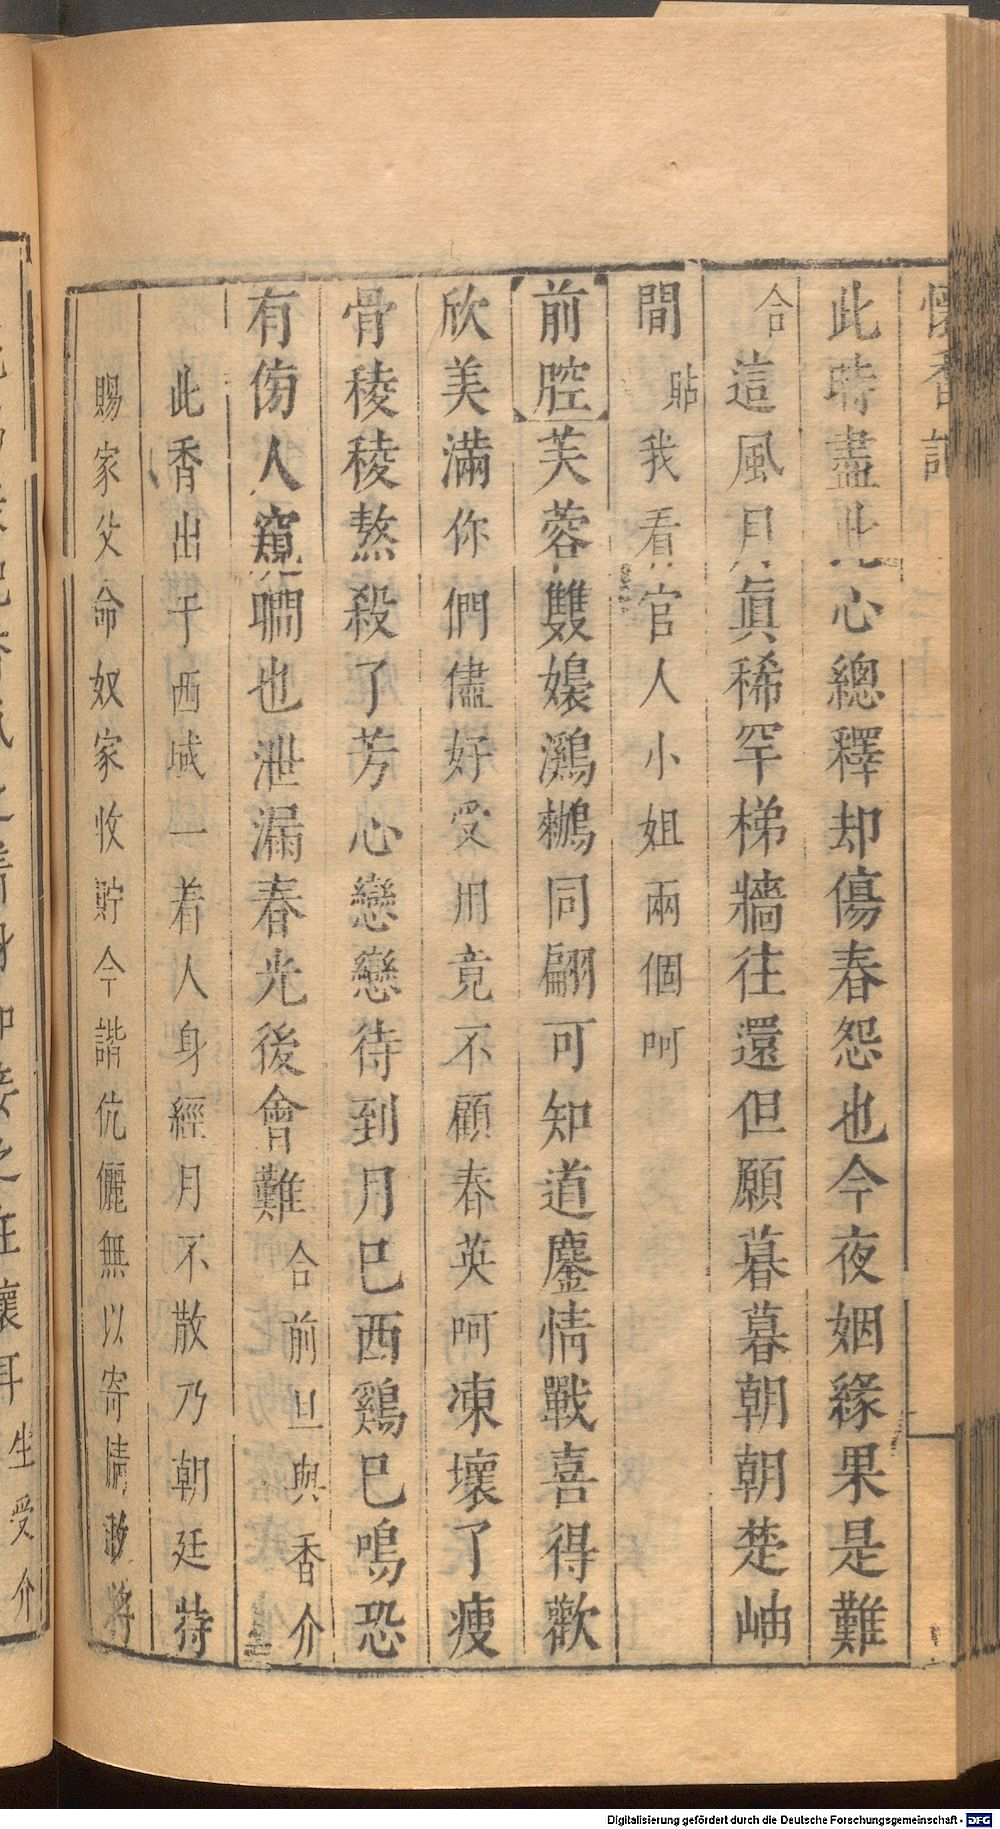 懷香記
此時盡此心總釋却傷春怨也今夜姻緣果是難
合這風月眞稀罕梯牆往還但願暮暮朝朝楚岫
間貼我看官人小姐兩個呵
前腔芙蓉雙嬝鸂鶒同翩可知道鏖情戰喜得歡
欣美滿你們儘好受用竟不顧春英呵凍壞了瘦
骨稜稜熬殺了芳心戀戀待到月已西鷄已鳴恐
有傍人窺瞯也泄漏春光後會難合前旦與香介
此香出于西域一着人身經月不散乃朝廷特
賜家父命奴家收貯今諧伉儷無以寄情敢將
生受介
Digitalisierung gefördert durch die Deutsche Forschungsgemeinschaft - DFG